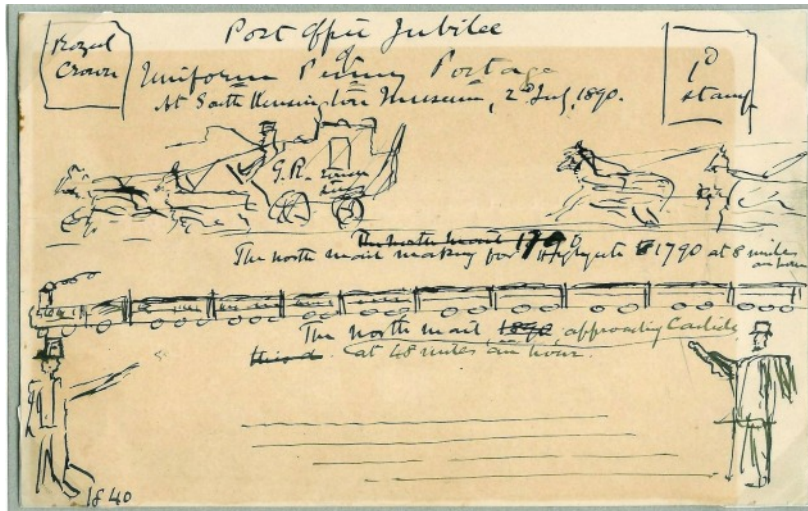 Post Office Jubilee
of
Royal
Crown
Uniform Penny Postage
At South Kensington Museum, 2d July, 1890.
1d
stamp
G.R.
The north mail 1790
The north mail making for Highgate 1790 at 8 miles
an hour
The north mail 1890 approaching Carlisle
at 48 miles an hour.
1840